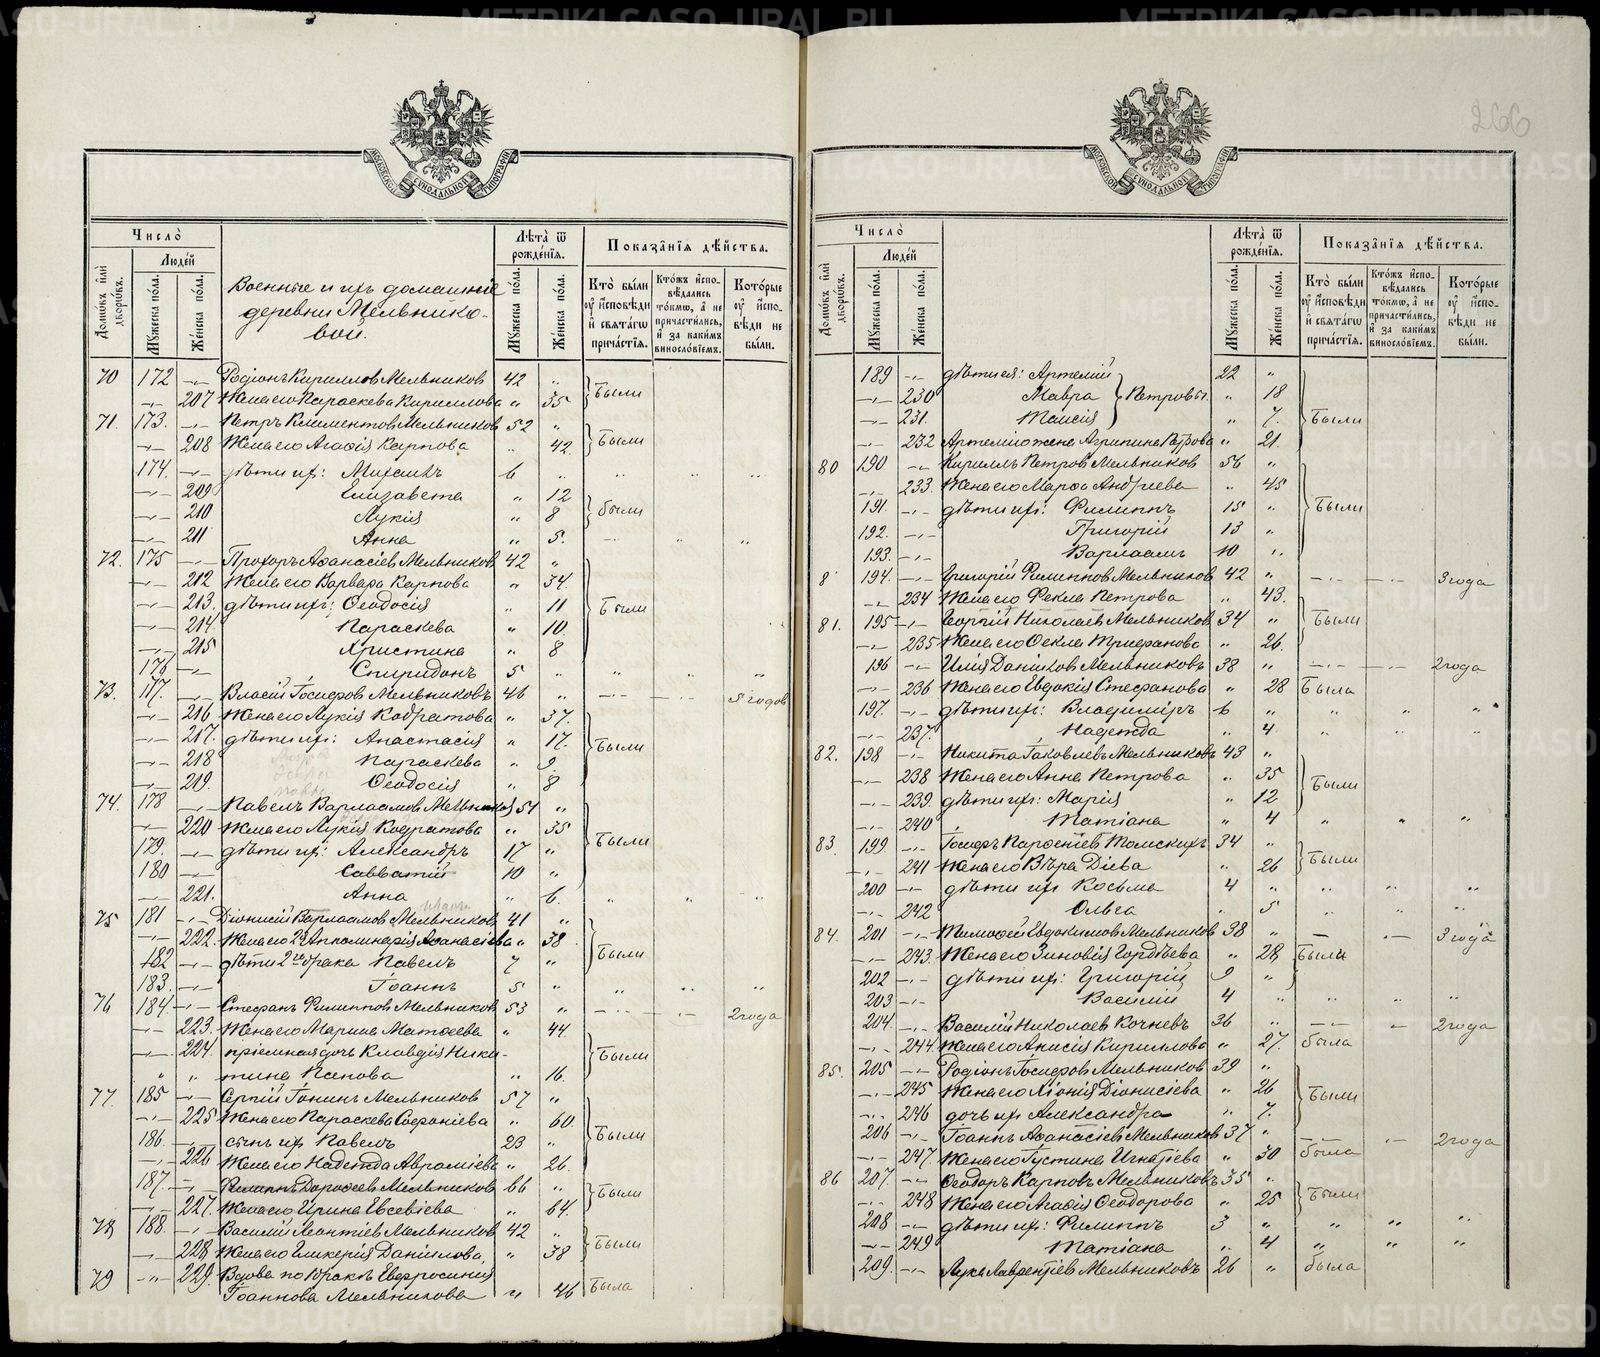 266
МОСКОВСКОЙ СѴНОДАЛЬНОЙ ТИПОГРАФІИ
Число̀
Людéй
Домѡ́въ и҆лѝ дворѡ́въ.
Мꙋ́жеска по́ла.
Же́нска по́ла.
Военные и ихъ домашніе
деревни Мельнико-
вой.
Лѣ́та ѿ рожде́нїѧ.
Мꙋ́жеска по́ла.
Же́нска по́ла.
Показа̑нїѧ дѣ́йства.
Кто̀ бы́ли ᲂу҆ и҆сповѣди и҆ свѧта́гѡ прича́стїѧ.
Кто́жъ и҆спо- вѣдались то́кмѡ, а҆ не причасти́лись, и҆ за каки́мъ винослóвїемъ.
Кото́рые ᲂу҆ и҆спо- вѣди не бы́ли.
70 172 -„- Родіонъ Кирилловъ Мельниковъ 42 „
-„- 207 Жена его Параскева Кириллова „ 35 Были
71. 173. -„- Петръ Климентовъ Мельниковъ 52 „
-„- 208 Жена его Агафія Карпова „ 42. Были
174. -„- дѣти ихъ: Михаилъ 6 „ „ „ „
-„- 209 Елизавета „ 12
-„- 210 Лукія „ 8 были
-„- 211 Анна „ 5. „ „ „
72. 175 -„- Прохоръ Аѳанасіевъ Мельниковъ 42 „
-„- 212 Жена его Варвара Карпова „ 34.
-„- 213. дѣти ихъ: Ѳеодосія „ 11 Были
-„- 214 Параскева „ 10
-„- 215 Христина „ 8
176 -„- Спиридонъ 5 „ „ „ „
73. 177. -„- Власій Іосифовъ Мельниковъ 46 „ -„- -„- 5 годовъ
-„- 216 Жена его Лукія Кодратова „ 37.
-„- 217. дѣти ихъ: Анастасія „ 17. Были
-„- 218 Параскева „ 9.
-„- 219. Ѳеодосія „ 8
74. 178 -„- Павелъ Варлаамовъ Мельниковъ 51 „
-„- 220 Жена его Лукія Кодратова „ 35
179. -„- дѣти ихъ: Александръ 17 „ Были
180 -„- Савватій 10 „
-„- 221. Анна „ 6. „ „ „
75 181 -„- Діонисій Варлаамовъ Мельниковъ 41 „
-„- 222. Жена его 2я Апполинарія Аѳанасіева „ 38
182 -„- дѣти 2го брака Павелъ 7 „ Были
183. -„- Іоаннъ 5 „ „ „ „
76 184 -„- Стефанъ Филипповъ Мельниковъ 53 „ -„- -„- 2 года
-„- 223. Жена его Марина Матѳеева „ 44.
-„- 224. пріемная дочь Клавдія Ники- Были
„ „ тина Попова „ 16.
77 185 -„- Сергій Іонинъ Мельниковъ 57 „
-„- 225 Жена его Параскева Софоніева „ 60.
186. -„- сынъ ихъ Павелъ 23 „ Были
-„- 226 Жена его Надежда Авраміева „ 26.
187. -„- Филиппъ Дороѳеевъ Мельниковъ 66 „
-„- 227. Жена его Ирина Евсевіева „ 64. Были
78 188. -„- Василій Леонтіевъ Мельниковъ 42 „
-„- 228 Жена его Гликерія Даніилова „ 38 Были
79 -„- 229. Вдова по 1 бракѣ Евфросинія
Іоаннова Мельникова „ 46 Была
Число̀
Людéй
Домѡ́въ и҆лѝ дворѡ́въ.
Мꙋ́жеска по́ла.
Же́нска по́ла.
Лѣ́та ѿ рожде́нїѧ.
Мꙋ́жеска по́ла.
Же́нска по́ла.
Показа̑нїѧ дѣ́йства.
Кто̀ бы́ли ᲂу҆ и҆сповѣди и҆ свѧта́гѡ прича́стїѧ.
Кто́жъ и҆спо- вѣдались то́кмѡ, а҆ не причасти́лись, и҆ за каки́мъ винослóвїемъ.
Кото́рые ᲂу҆ и҆спо- вѣди не бы́ли.
189 -„- дѣти ея: Артемій 22 „
-„- 230 Мавра Петровы. „ 18
-„- 231. Таисія „ 7. Были
-„- 232 Артемія жена Агрипина Петрова „ 21.
80 190 -„- Кириллъ Петровъ Мельниковъ 56 „
-„- 233. Жена его Марѳа Андреева „ 45
191. -„- дѣти ихъ: Филиппъ 15 „ Были
192. -„- Григорій 13 „
193. -„- Варлаамъ 10 „
8 194. -„- Григорій Филипповъ Мельниковъ 42 „ -„- -„- 3 года
-„- 234 Жена его Фекла Петрова „ 43.
81. 195 -„- Георгій Николаевъ Мельниковъ 34 „ Были
-„- 235 Жена его Ѳекла Трифанова „ 26.
196 -„- Илія Даніиловъ Мельниковъ 38 „ -„- -„- 2 года
-„- 236 Жена его Евдокія Стефанова „ 28 Была
197. -„- дѣти ихъ: Владиміръ 6 „ „ „ „
-„- 237. Надежда „ 4 „ „ „
82. 198 -„- Никита Іаковлевъ Мельниковъ 43 „
-„- 238 Жена его Анна Петрова „ 35 Были
-„- 239. дѣти ихъ: Марія „ 12
-„- 240 Татіана „ 4 „ „ „
83. 199 -„- Іосифъ Парѳеніевъ Томскихъ 34 „
-„- 241 Жена его Вѣра Діева „ 26 Были
200 -„- дѣти ихъ Косьма 4 „ „ „ „
-„- 242 Ольга „ 5 „ „ „
84. 201 -„- Тимоѳей Евдокимовъ Мельниковъ 38 „ — -„- 3 года
-„- 243. Жена его Зиновія Гордѣева „ 28 Были
202 -„- дѣти ихъ: Григорій 9 „
203 -„- Василій 4 „ „ „ „
204. -„- Василій Николаевъ Кочневъ 36 „ -„- -„- 2 года
-„- 244. Жена его Анисія Кириллова „ 27. была
85. 205 -„- Родіонъ Іосифовъ Мельниковъ 39 „
-„- 245 Жена его Хіонія Діонисіева „ 26 Были
-„- 246 дочь ихъ Александра „ 7.
206 -„- Іоаннъ Аѳанасіевъ Мельниковъ 37 „ -„- 2 года
-„- 247 Жена его Іустина Игнатіева „ 30 была
86 207. -„- Ѳеодоръ Карповъ Мельниковъ 35 „
-„- 248 Жена его Агафія Ѳеодорова „ 25 Были
208 -„- дѣти ихъ: Филиппъ 3 „ „ „ „
-„- 249 Татіана „ 4 „ „ „
209. -„- Лука Лаврентіевъ Мельниковъ 26 „ была
METRIKI.GASO-URAL.RU